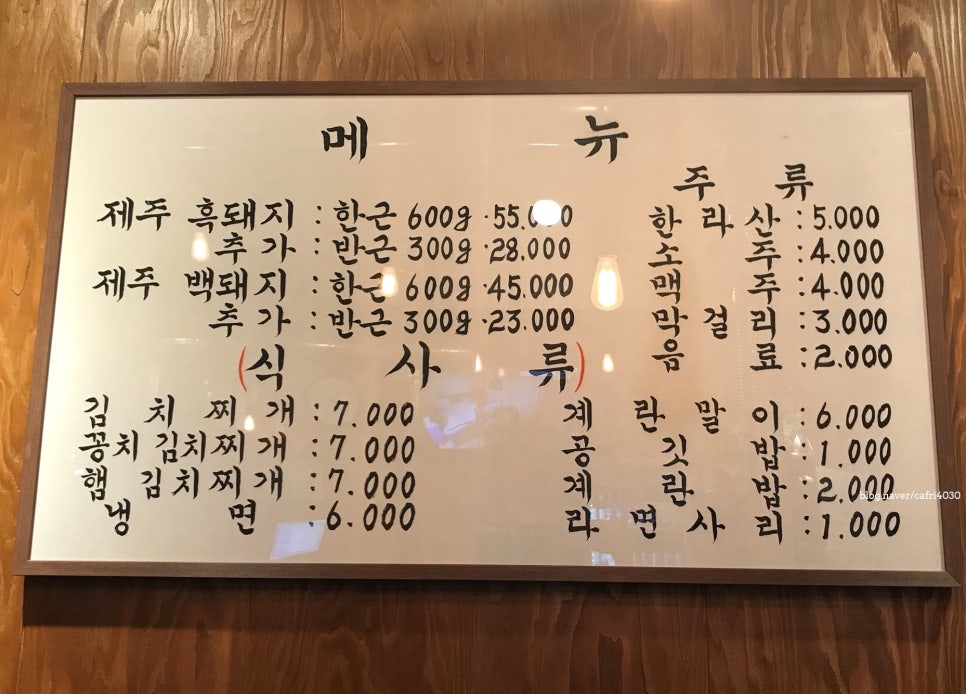 메 뉴
제주 흑돼지 : 한근 600g ·55.000
추가 : 반근 300g ·28.000
제주 백돼지 : 한근 600g ·45.000
추가 : 반근 300g ·23.000
주 류
한 라 산 : 5.000
소 주 : 4.000
맥 주 : 4.000
막 걸 리 : 3.000
음 료 : 2.000
(식 사 류)
김 치 찌 개 : 7.000
꽁치 김치찌개 : 7.000
햄 김치찌개 : 7.000
냉 면 : 6.000
계 란 말 이 : 6.000
공 깃 밥 : 1.000
계 란 밥 : 2.000
라 면 사 리 : 1.000
blog.naver/cafri4030